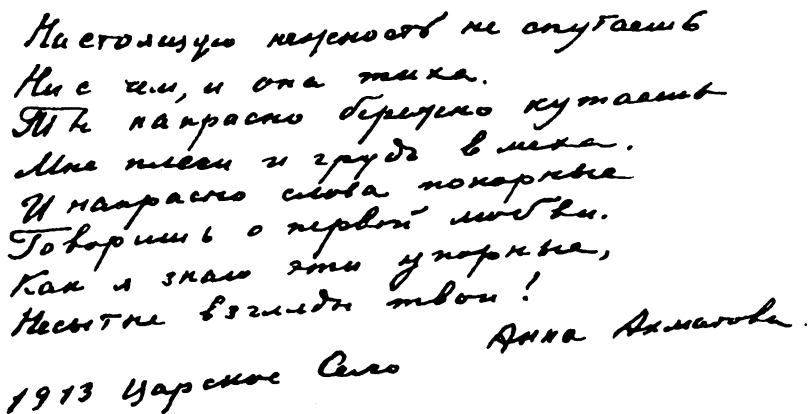 Настоящую нежность не спутаешь
Ни с чем, и она тиха.
Ты напрасно бережно кутаешь
Мне плечи и грудь в меха.
И напрасно слова покорные
Говоришь о первой любви.
Как я знаю эти упорные,
Несытые взгляды твои!
Анна Ахматова.
1913 Царское Село